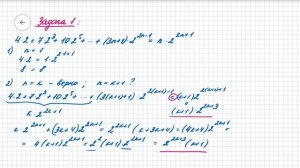 Задача 1:
4·2 + 7·2³ + 10·2⁵ + ... + (3n+1)·2²ⁿ⁻¹ = n·2²ⁿ⁺¹
1) n = 1
4·2 = 1·2²⁺¹
8 = 8
2) n = k – верно; n = k+1 ?
4·2 + 7·2³ + 10·2⁵ + ... + (3(k+1)+1)·2²⁽ᵏ⁺¹⁾⁻¹ = (k+1)2²⁽ᵏ⁺¹⁾⁺¹
k·2²ᵏ⁺¹ (k+1)·2²ᵏ⁺³
k·2²ᵏ⁺¹ + (3k+4)2²ᵏ⁺¹ = 2²ᵏ⁺¹(k+3k+4) = (4k+4)2²ᵏ⁺¹ =
= 4(k+1)2²ᵏ⁺¹ = 2²(k+1)·2²ᵏ⁺¹ = 2²ᵏ⁺³(k+1)